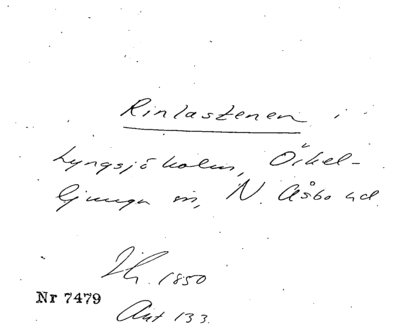 Rinlastenen i
Lyngsjöholm, Öikel-
ljunga sn, N. Åsbo hd.
1850
Nr 7479
Ant 133.